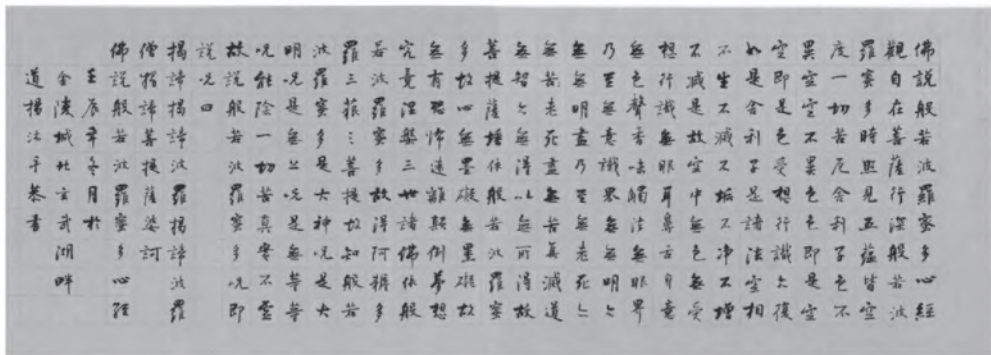 佛説般若波羅蜜多心經
觀自在菩薩行深般若波
羅蜜多時照見五蘊皆空
度一切苦厄舍利子色不
異空空不異色色即是空
空即是色受想行識亦復
如是舍利子是諸法空相
不生不滅不垢不净不增
不減是故空中無色無受
想行識無眼耳鼻舌身意
無色聲香味觸法無眼界
乃至無意識界無無明亦
無無明盡乃至無老死亦
無苦老死盡無苦集滅道
無智亦無得以無所得故
菩提薩埵依般若波羅蜜
多故心無罣礙無罣礙故
無有恐怖遠離顛倒夢想
究竟涅槃三世諸佛依般
若波羅蜜多故得阿耨多
羅三藐三菩提故知般若
波羅蜜多是大神咒是大
明咒是無上咒是無等等
咒能除一切苦真實不虛
故説般若波羅蜜多咒即
説咒曰
揭諦揭諦波羅揭諦波羅
僧揭諦菩提薩婆訶
佛説般若波羅蜜多心經
壬辰年冬月於
金陵城北玄武湖畔
道揚法平恭書